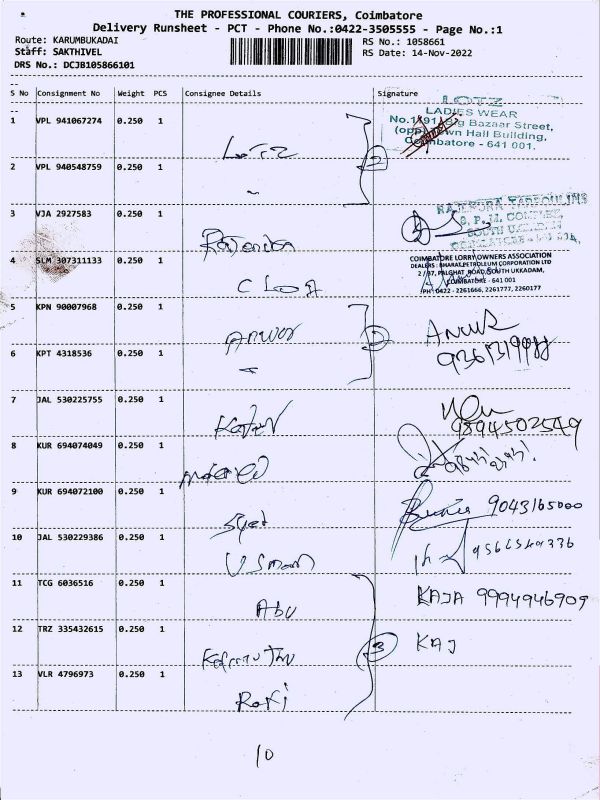 THE PROFESSIONAL COURIERS, Coimbatore
Delivery Runsheet - PCT - Phone No.:0422-3505555 - Page No.:1
Route: KARUMBUKADAI
RS No.: 1058661
Staff: SAKTHIVEL
RS Date: 14-Nov-2022
DRS No.: DCJB105866101
S No Consignment No Weight PCS Consignee Details Signature
LOTZ
LADIES WEAR
Bazaar Street,
Town Hall Building,
Coimbatore - 641 001.
1 VPL 941067274 0.250 1 Lotz
2
2 VPL 940548759 0.250 1 "
RAJENDRA TARPOULINS
3 VJA 2927583 0.250 1 Rajendra
SOUTH UKKADAM
4 SLM 307311133 0.250 1 C Loa
COIMBATORE LORRY OWNERS ASSOCIATION
DEALERS : BHARAT PETROLEUM CORPORATION LTD
2 / 37, PALGHAT ROAD, SOUTH UKKADAM,
COIMBATORE - 641 001
PH: 0422 - 2261666, 2261777, 2260177
5 KPN 90007968 0.250 1 Anwar
2
6 KPT 4318536 0.250 1
7 JAL 530225755 0.250 1
9894502549
8 KUR 694074049 0.250 1
9 KUR 694072100 0.250 1 Syed 9043165000
10 JAL 530229386 0.250 1 Usman
11 TCG 6036516 0.250 1 Abu KAJA 9994946909
12 TRZ 335432615 0.250 1 3 KAJ
13 VLR 4796973 0.250 1 Rafi
10